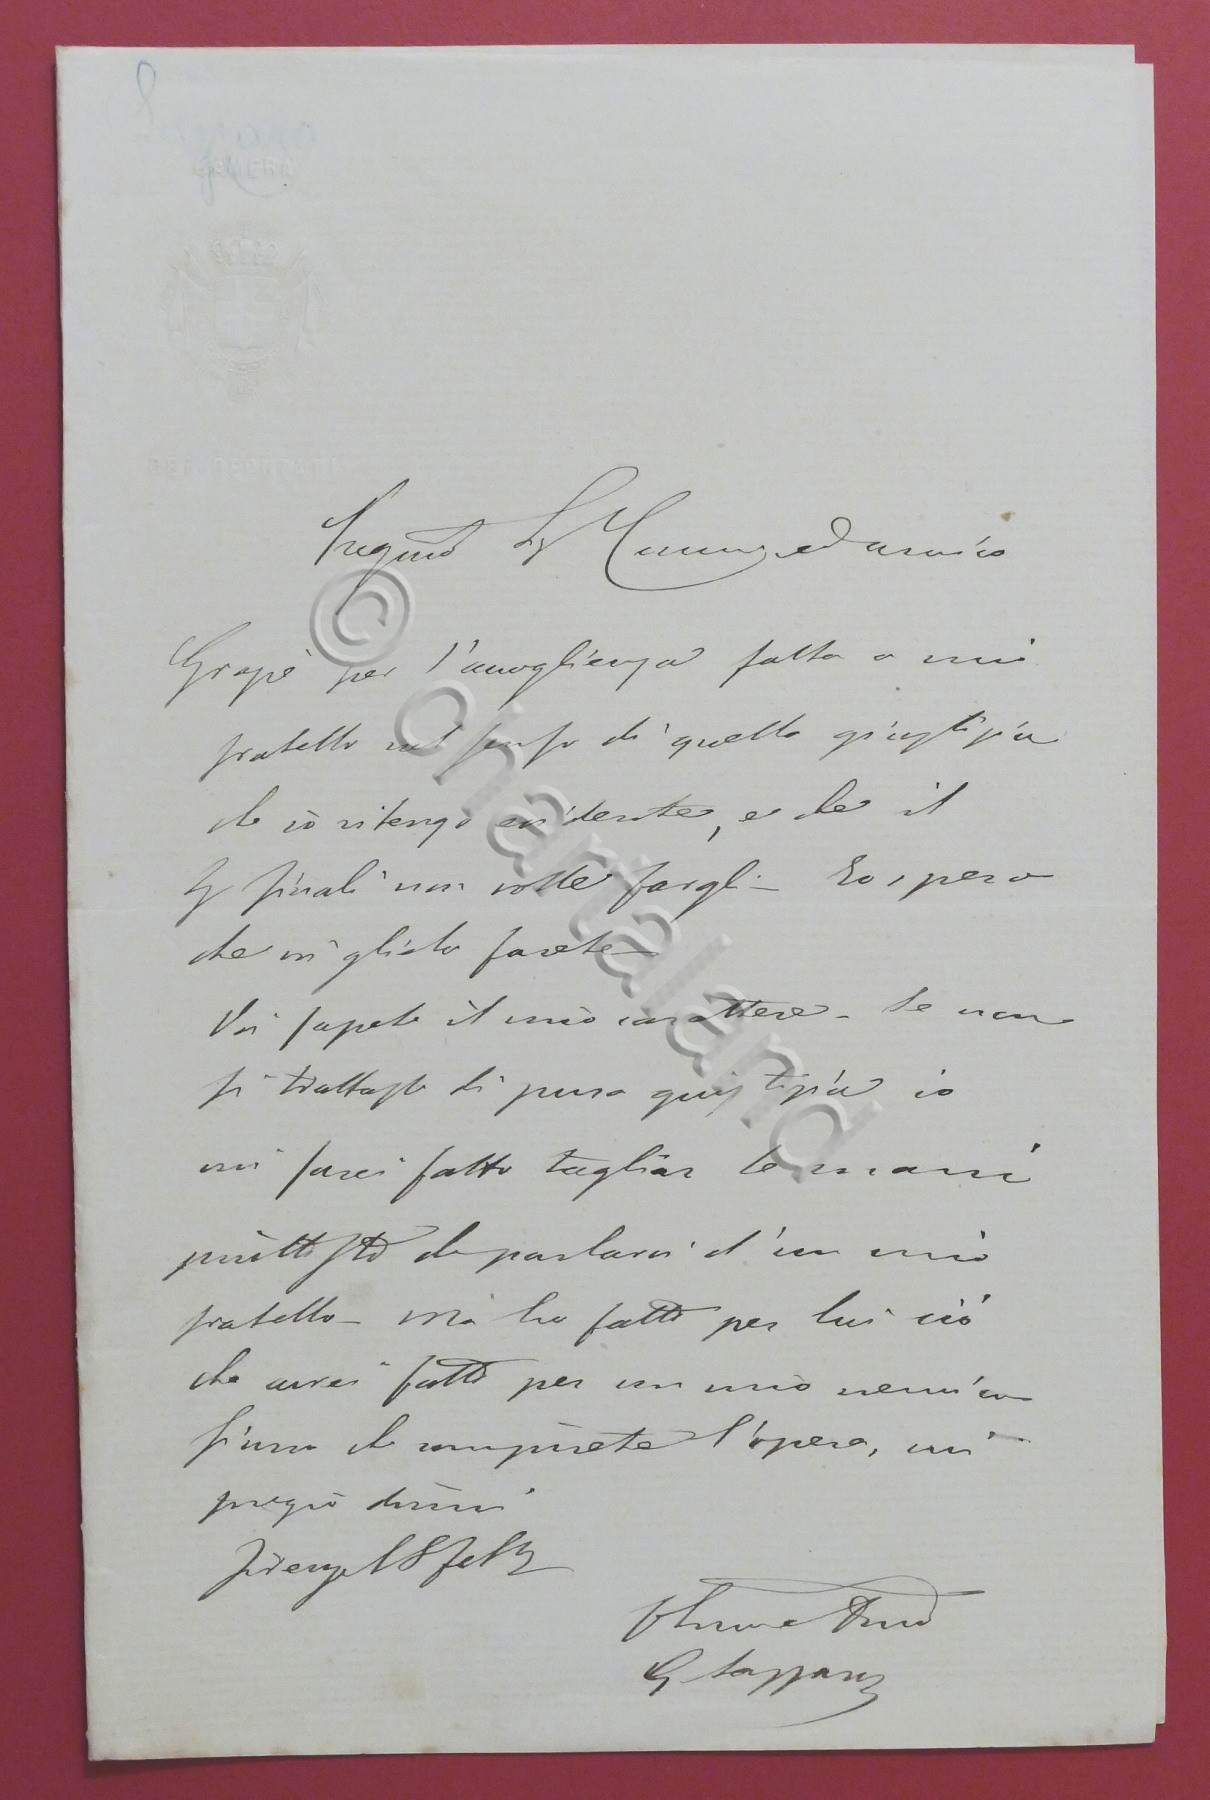 CAMERA
DEI DEPUTATI
Pregmo Sr Comm. ed amico
Grazie per l'accoglienza fatta a mio
fratello nel senso di quella giustizia
che io ritengo evidente, e che il
Sr Finali non volle fargli - Io spero
che voi gliela farete -
Voi sapete il mio carattere - Se non
si trattasse di pura giustizia io
mi sarei fatto tagliar le mani
piuttosto che parlarvi d'un mio
fratello - Ma ho fatto per lui ciò
che avrei fatto per un mio nemico
Sicuro che compirete l'opera, mi
pregio dirmi
Firenze
G
© chartaland